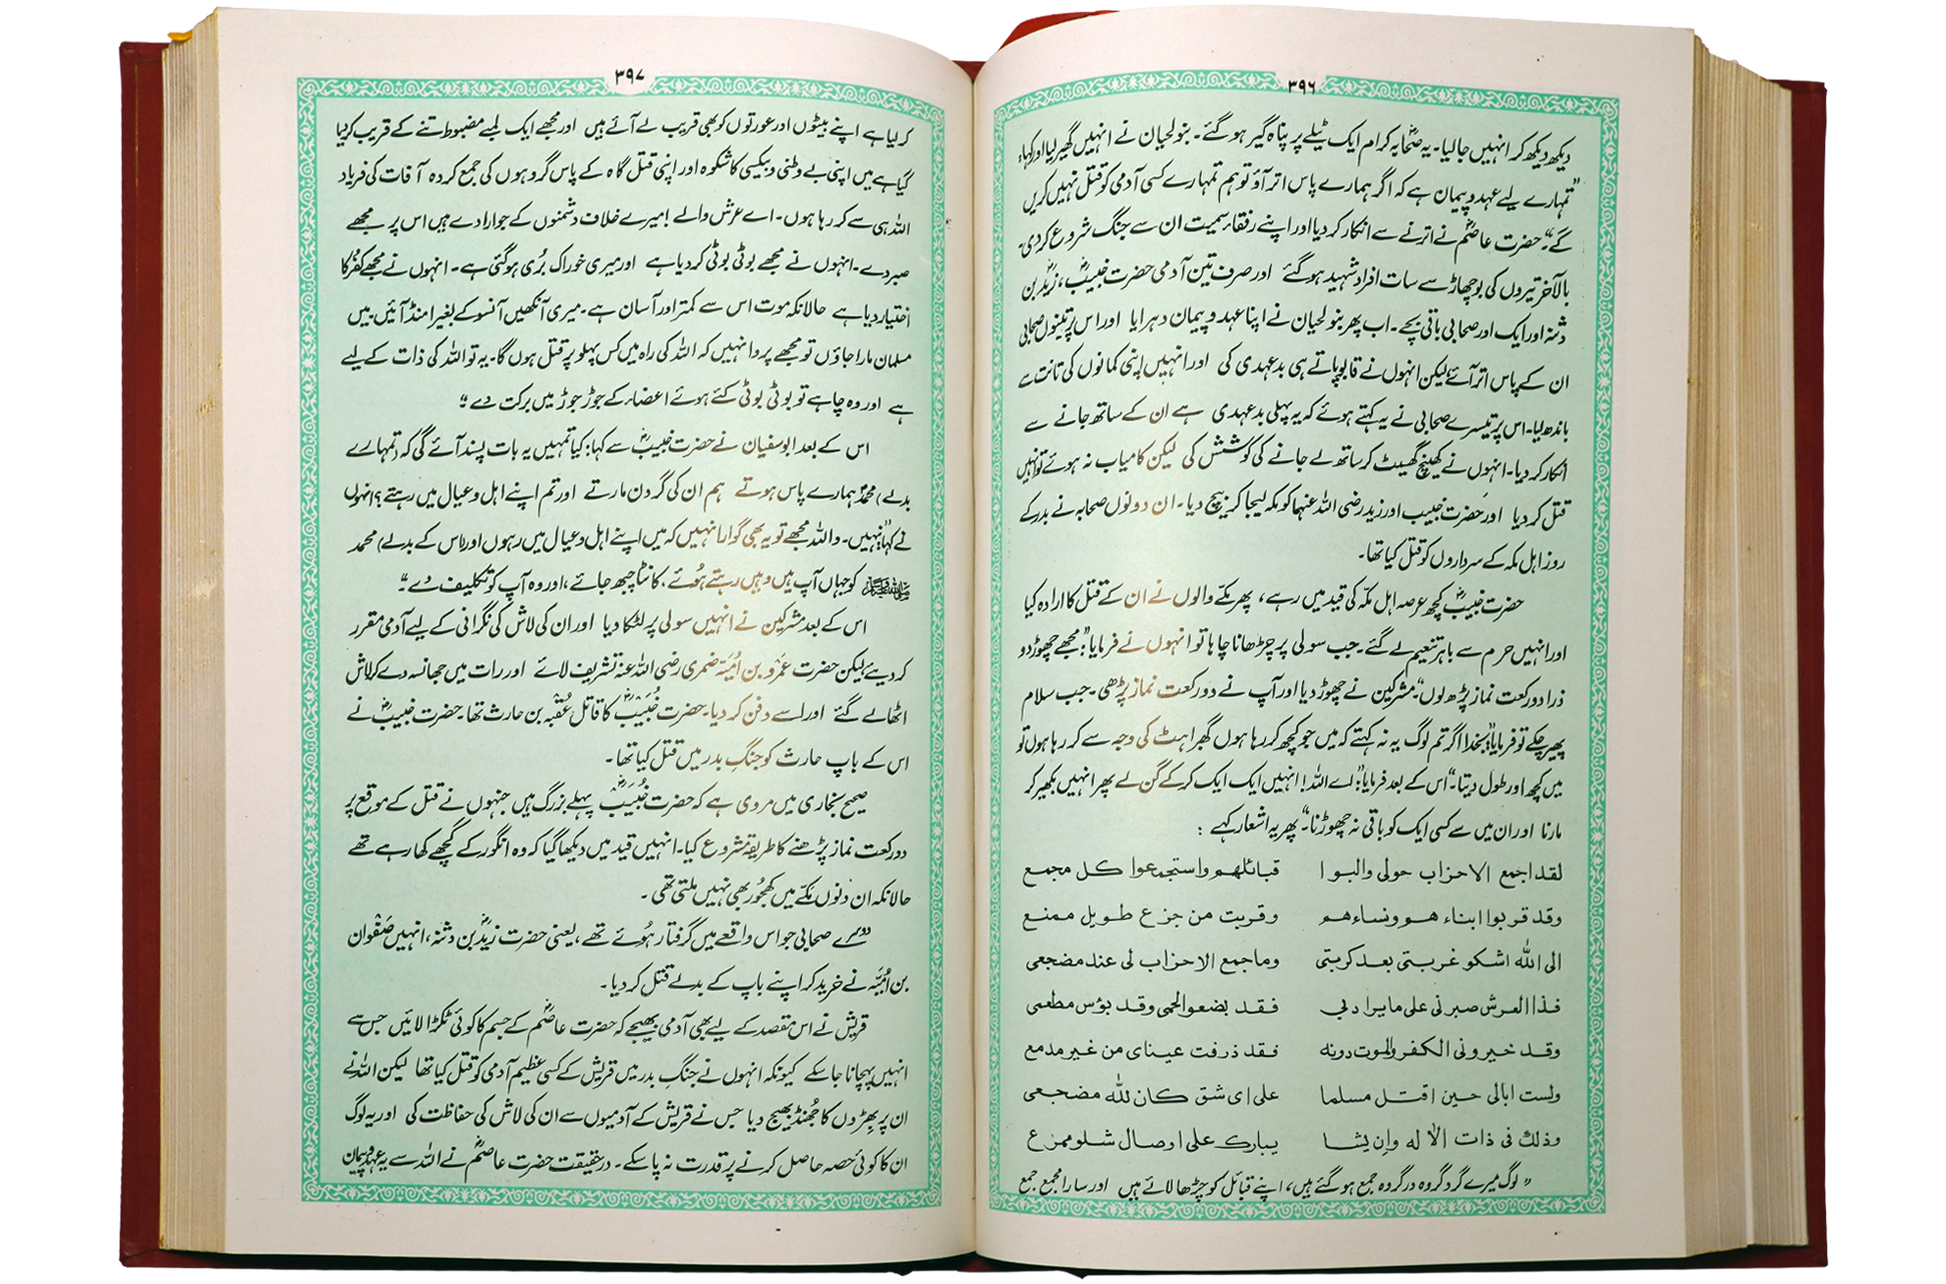 ۳۹۶
دیکھ دیکھ کر انہیں جا لیا۔ یہ صحابہ کرام ایک ٹیلے پر پناہ گیر ہو گئے۔ بنو لحیان نے انہیں گھیر لیا اور کہا؛
”تمہارے لیے عہد و پیمان ہے کہ اگر ہمارے پاس اتر آؤ تو ہم تمہارے کسی آدمی کو قتل نہیں کریں
گے“۔ حضرت عاصمؓ نے اترنے سے انکار کر دیا اور اپنے رفقاء سمیت ان سے جنگ شروع کر دی۔
بالآخر تیروں کی بوچھاڑ سے سات افراد شہید ہو گئے اور صرف تین آدمی حضرت خبیبؓ، زیدؓ بن
دثنہ اور ایک اور صحابی باقی بچے۔ اب پھر بنو لحیان نے اپنا عہد و پیمان دہرایا اور اس پر تینوں صحابی
ان کے پاس اتر آئے لیکن انہوں نے قابو پاتے ہی بدعہدی کی اور انہیں اپنی کمانوں کی تانت سے
باندھ لیا۔ اس پر تیسرے صحابی نے یہ کہتے ہوئے کہ یہ پہلی بدعہدی ہے ان کے ساتھ جانے سے
انکار کر دیا۔ انہوں نے کھینچ گھسیٹ کر ساتھ لے جانے کی کوشش کی لیکن کامیاب نہ ہوئے تو انہیں
قتل کر دیا اور حضرت خبیب اور زید رضی اللہ عنہما کو مکہ لیجا کر بیچ دیا۔ ان دونوں صحابہ نے بدر کے
روز اہل مکہ کے سرداروں کو قتل کیا تھا۔
حضرت خبیبؓ کچھ عرصہ اہل مکہ کی قید میں رہے، پھر مکّے والوں نے ان کے قتل کا ارادہ کیا
اور انہیں حرم سے باہر تنعیم لے گئے۔ جب سولی پر چڑھانا چاہا تو انہوں نے فرمایا؛ ”مجھے چھوڑ دو
ذرا دو رکعت نماز پڑھ لوں“۔ مشرکین نے چھوڑ دیا اور آپ نے دو رکعت نماز پڑھی۔ جب سلام
پھیر چکے تو فرمایا؛ ”بخدا اگر تم لوگ یہ نہ کہتے کہ میں جو کچھ کر رہا ہوں گھبراہٹ کی وجہ سے کر رہا ہوں تو
میں کچھ اور طول دیتا“۔ اس کے بعد فرمایا؛ ”اے اللہ! انہیں ایک ایک کر کے گن لے پھر انہیں بکھیر کر
مارنا اور ان میں سے کسی ایک کو باقی نہ چھوڑنا“۔ پھر یہ اشعار کہے :
لقد اجمع الاحزاب حولی والبوا قبائلھم واستجمعوا کل مجمع
وقد قربوا ابناءھم ونساءھم وقربت من جزع طویل ممنع
الی اللہ اشکو غربتی بعد کربتی وما جمع الاحزاب لی عند مضجعی
فذا العرش صبرنی علی ما یراد بی فقد بضعوا لحمی وقد بؤس مطعمی
وقد خیرونی الکفر والموت دونہ فقد ذرفت عینای من غیر مدمع
ولست ابالی حین اقتل مسلما علی ای شق کان للہ مضجعی
وذلک فی ذات الالہ وان یشا یبارک علی اوصال شلو ممزع
” لوگ میرے گرد گروہ در گروہ جمع ہو گئے ہیں، اپنے قبائل کو چڑھا لائے ہیں اور سارا مجمع جمع
۳۹۷
کر لیا ہے اپنے بیٹوں اور عورتوں کو بھی قریب لے آئے ہیں اور مجھے ایک لمبے مضبوط تنے کے قریب کر دیا
گیا ہے میں اپنی بے وطنی و بیکسی کا شکوہ اور اپنی قتل گاہ کے پاس گروہوں کی جمع کردہ آفات کی فریاد
اللہ ہی سے کر رہا ہوں۔ اے عرش والے! میرے خلاف دشمنوں کے جو ارادے ہیں اس پر مجھے
صبر دے۔ انہوں نے مجھے بوٹی بوٹی کر دیا ہے اور میری خوراک بُری ہو گئی ہے۔ انہوں نے مجھے کفر کا
اختیار دیا ہے حالانکہ موت اس سے کمتر اور آسان ہے۔ میری آنکھیں آنسو کے بغیر امنڈ آئیں ہیں
مسلمان مارا جاؤں تو مجھے پروا نہیں کہ اللہ کی راہ میں کس پہلو پر قتل ہوں گا۔ یہ تو اللہ کی ذات کے لیے
ہے اور وہ چاہے تو بوٹی بوٹی کئے ہوئے اعضاء کے جوڑ جوڑ میں برکت دے“
اس کے بعد ابو سفیان نے حضرت خبیبؓ سے کہا؛ کیا تمہیں یہ بات پسند آئے گی کہ (تمہارے
بدلے) محمدؐ ہمارے پاس ہوتے ہم ان کی گردن مارتے اور تم اپنے اہل و عیال میں رہتے؟ انہوں
نے کہا؛ ”نہیں۔ واللہ مجھے تو یہ بھی گوارا نہیں کہ میں اپنے اہل و عیال میں رہوں اور (اس کے بدلے) محمد
ﷺ کو جہاں آپ ہیں وہیں رہتے ہُوئے، کانٹا چبھ جائے، اور وہ آپ کو تکلیف دے“۔
اس کے بعد مشرکین نے انہیں سولی پر لٹکا دیا اور ان کی لاش کی نگرانی کے لیے آدمی مقرر
کر دیئے لیکن حضرت عمرو بن اُمیّہ ضمری رضی اللہ عنہ تشریف لائے اور رات میں جھانسہ دے کر لاش
اٹھا لے گئے اور اسے دفن کر دیا۔ حضرت خُبَیبؓ کا قاتل عُقْبہ بن حارث تھا۔ حضرت خبیبؓ نے
اس کے باپ حارث کو جنگِ بدر میں قتل کیا تھا۔
صحیح بخاری میں مروی ہے کہ حضرت خُبَیبؓ پہلے بزرگ ہیں جنہوں نے قتل کے موقع پر
دو رکعت نماز پڑھنے کا طریقہ شروع کیا۔ انہیں قید میں دیکھا گیا کہ وہ انگور کے گچھے کھا رہے تھے
حالانکہ ان دنوں مکّے میں کھجُور بھی نہیں ملتی تھی۔
دوسرے صحابی جو اس واقعے میں گرفتار ہُوئے تھے، یعنی حضرت زیدؓ بن دثنہ، انہیں صَفْوان
بن اُمیّہ نے خرید کر اپنے باپ کے بدلے قتل کر دیا۔
قریش نے اس مقصد کے لیے بھی آدمی بھیجے کہ حضرت عاصمؓ کے جسم کا کوئی ٹکڑا لائیں جس سے
انہیں پہچانا جا سکے کیونکہ انہوں نے جنگِ بدر میں قریش کے کسی عظیم آدمی کو قتل کیا تھا لیکن اللہ نے
ان پر بِھڑوں کا جُھنڈ بھیج دیا جس نے قریش کے آدمیوں سے ان کی لاش کی حفاظت کی اور یہ لوگ
ان کا کوئی حصہ حاصل کرنے پر قدرت نہ پا سکے۔ درحقیقت حضرت عاصمؓ نے اللہ سے یہ عہد و پیمان